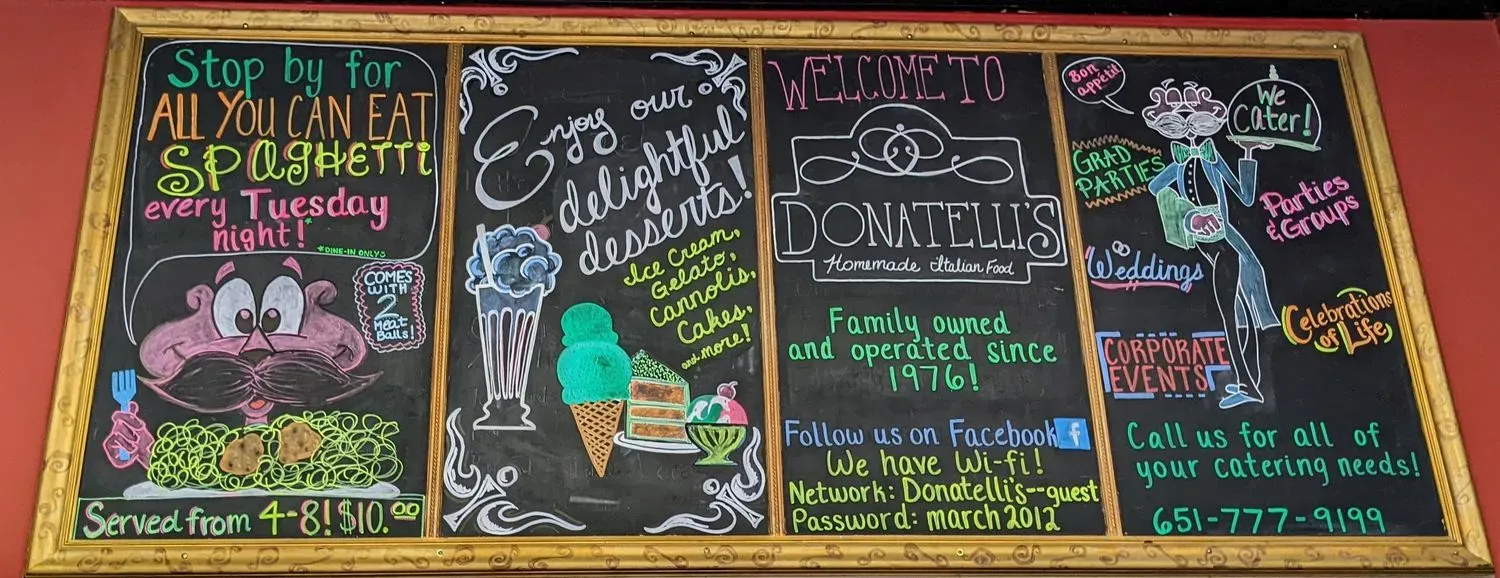 Stop by for
ALL YOU CAN EAT
SPAGHETTI
every Tuesday
night!*
*DINE-IN ONLY
COMES
WITH
2
Meat
Balls!
Served from 4-8! $10.00
Enjoy our
delightful
desserts!
Ice Cream,
Gelato,
Cannolis,
Cakes,
and more!
WELCOME TO
DONATELLI'S
Homemade Italian Food
Family owned
and operated since
1976!
Follow us on Facebook f
We have Wi-fi!
Network: Donatelli's--guest
Password: march 2012
Bon
appétit
We
Cater!
GRAD
PARTIES
Parties
& Groups
Weddings
Celebrations
of Life
CORPORATE
EVENTS
Call us for all of
your catering needs!
651-777-9199